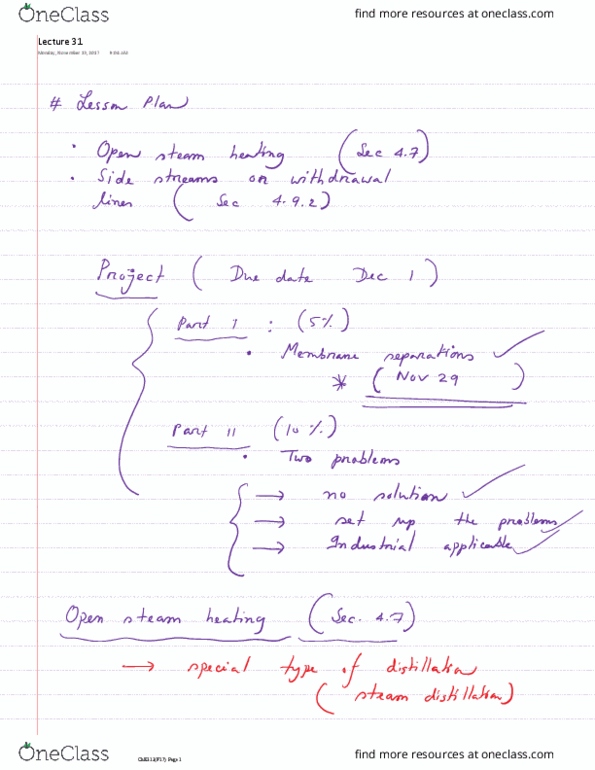 OneClass find more resources at oneclass.com
Lecture 31
# Lesson Plan
• Open steam heating (Sec 4.7)
• Side streams on withdrawal
lines ( Sec 4.9.2)
Project ( Due date Dec 1 )
Part I : (5%)
• Membrane separations ✓
* ( Nov 29 )
Part II (10 %)
• Two problems
→ no solution ✓
→ set up the problems ✓
→ Industrial applicable ✓
Open steam heating (Sec. 4.7)
→ special type of distillation
( steam distillation)
OneClass Page 1 find more resources at oneclass.com